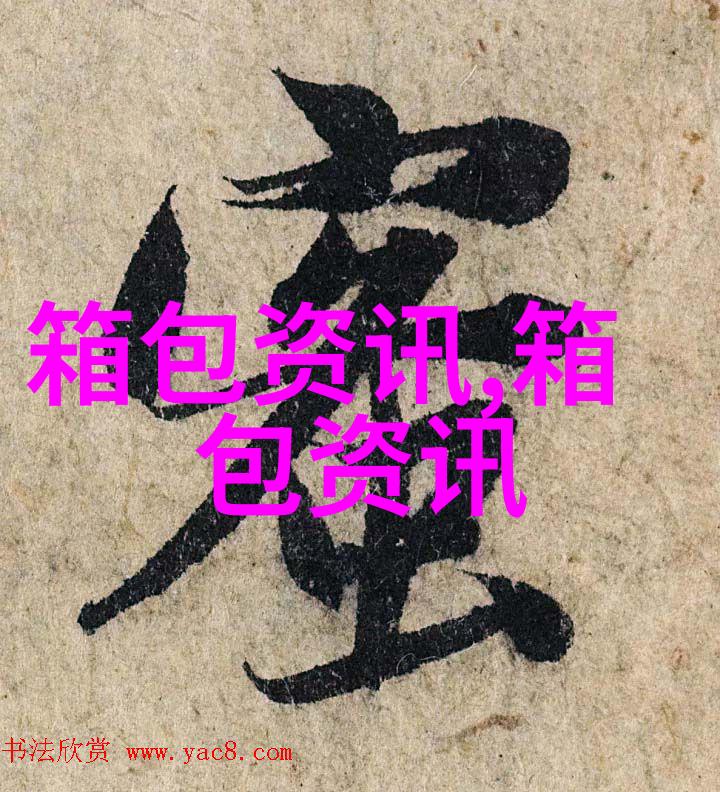 箱包资讯,箱
包资讯
书法欣赏 www.yac8.com